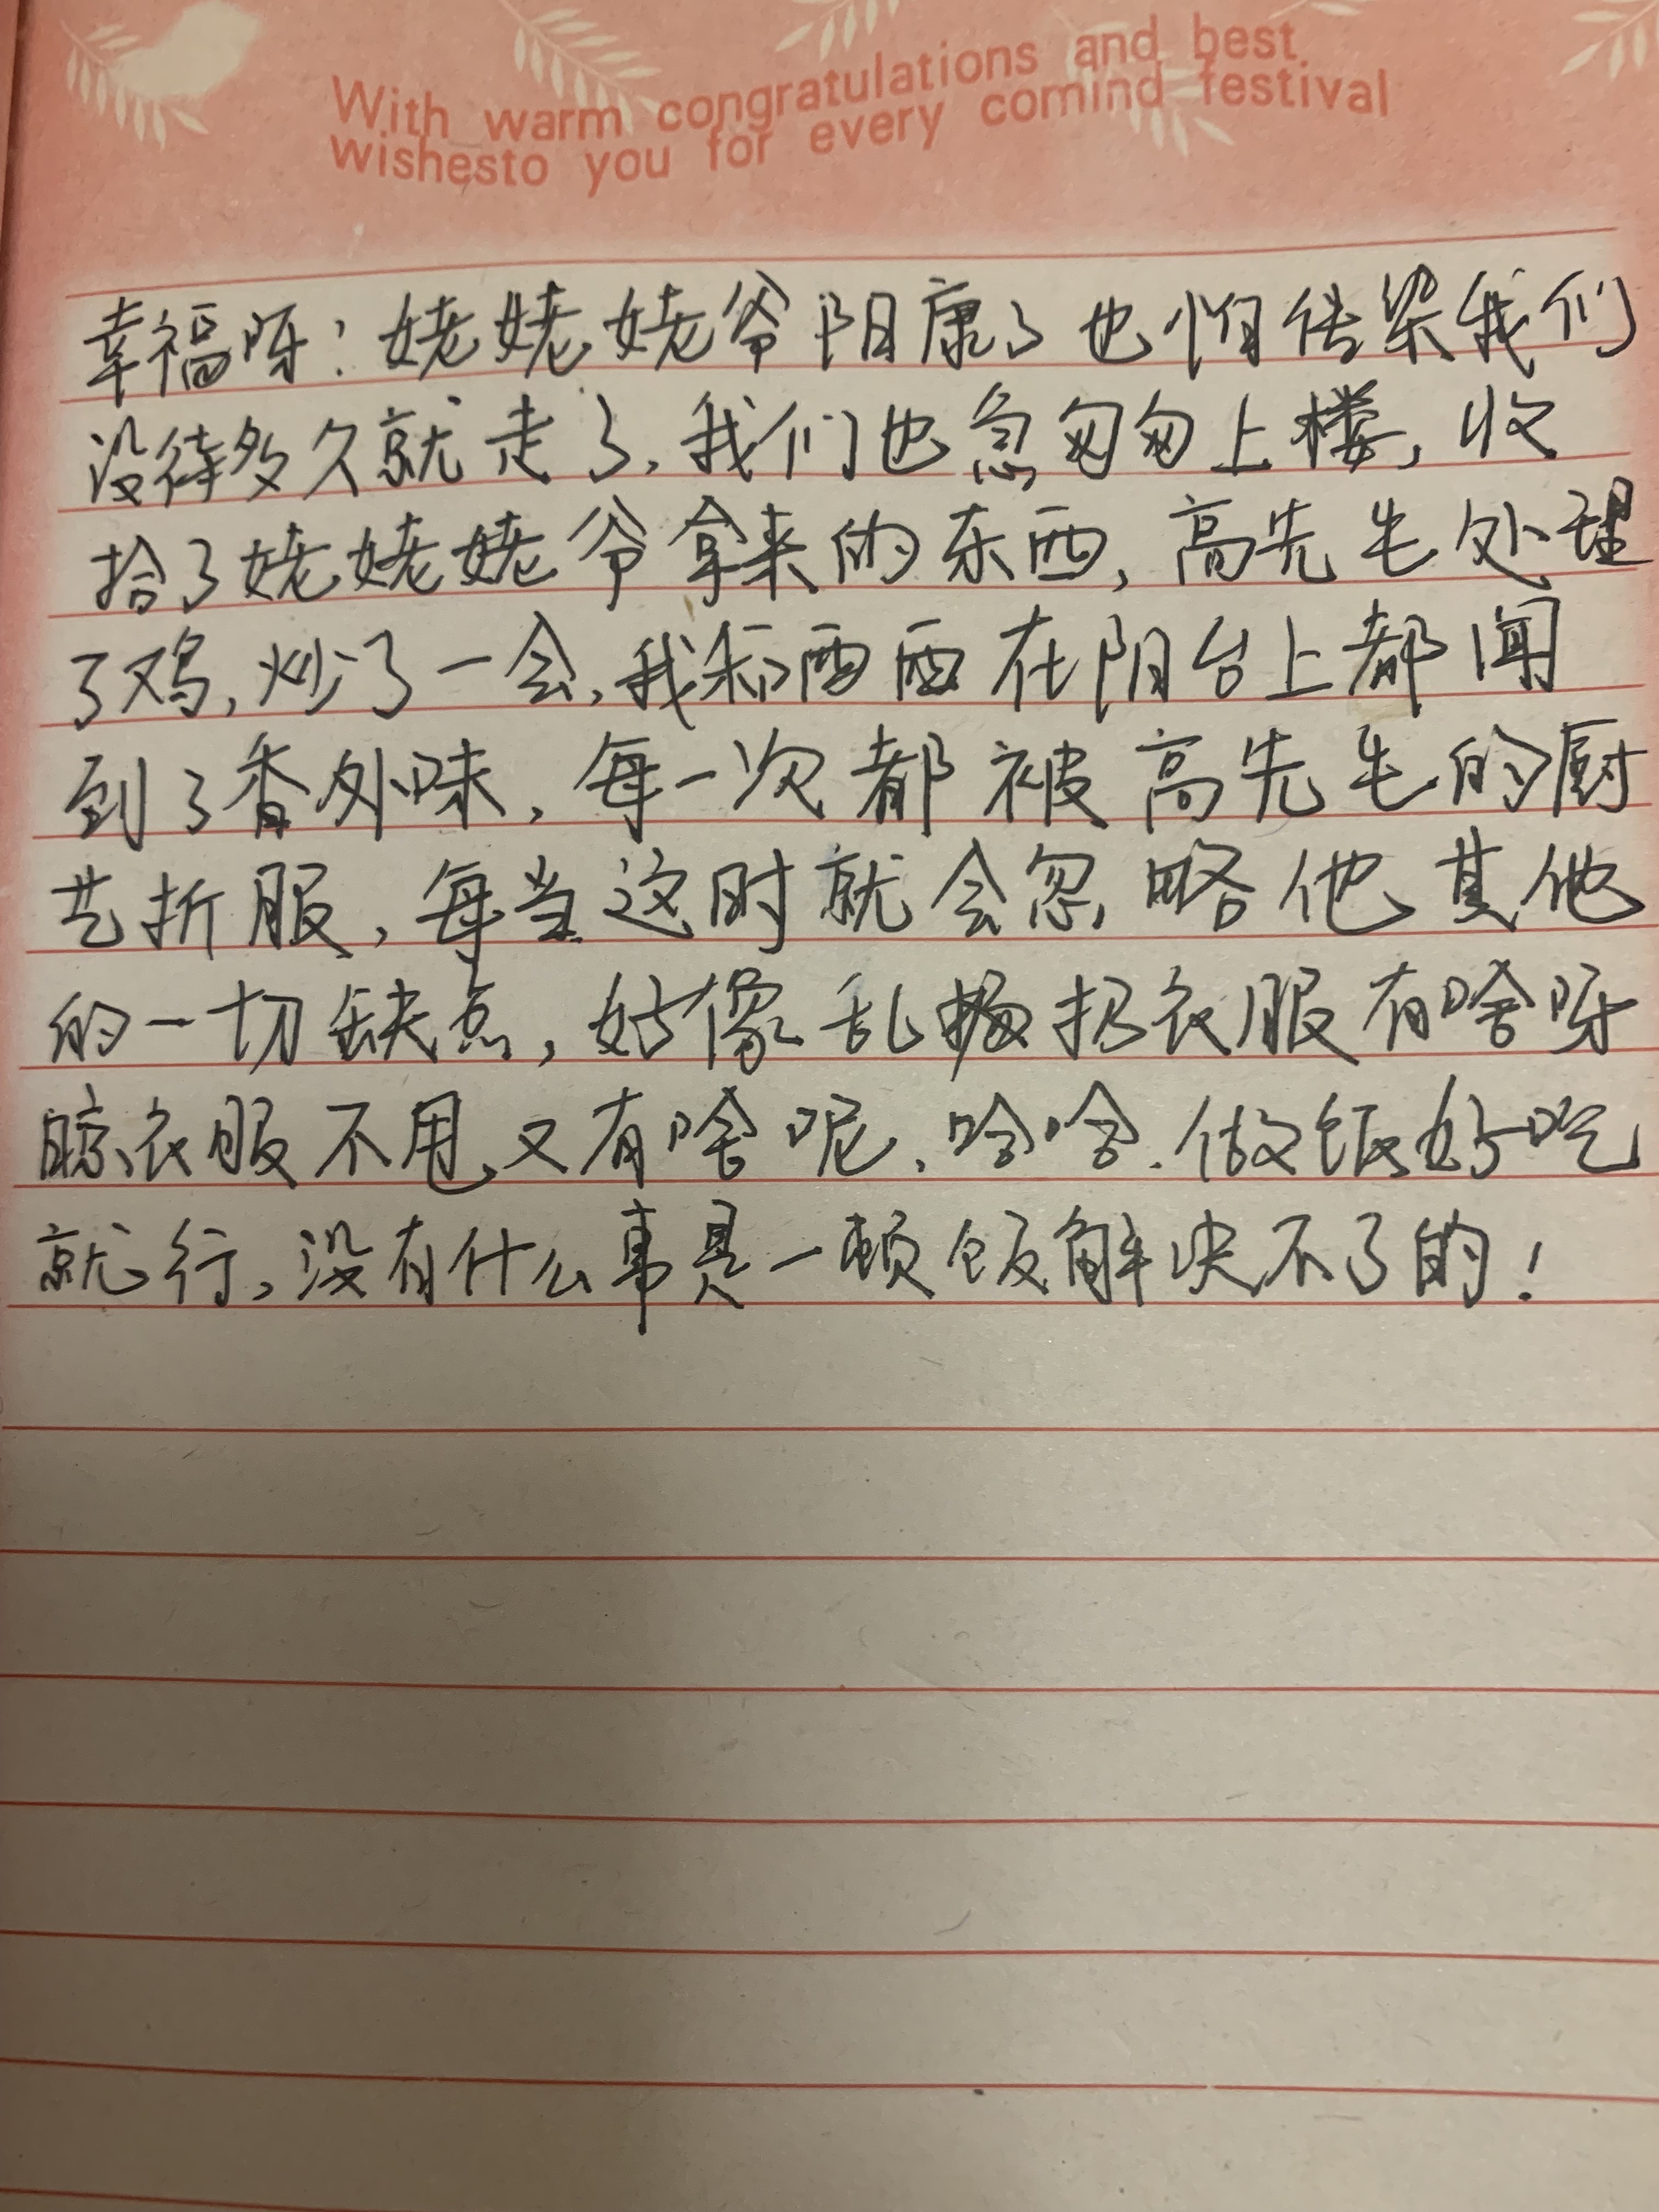 With warm congratulations and best
wishesto you for every comind festival
幸福呀！姥姥姥爷阳康了也怕传染我们
没待多久就走了，我们也急匆匆上楼，收
拾了姥姥姥爷拿来的东西，高先生处理
了鸡，炒了一会，我和西西在阳台上都闻
到了香外味，每一次都被高先生的厨
艺折服，每当这时就会忽略他其他
的一切缺点，好像乱扔衣服有啥呀
晾衣服不甩又有啥呢，哈哈，做饭好吃
就行，没有什么事是一顿饭解决不了的！